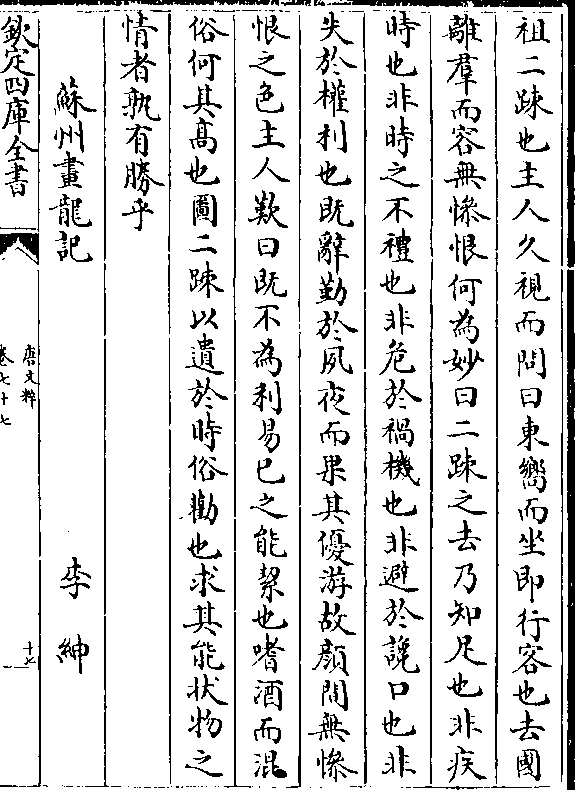 祖二踈也主人久視而問曰東嚮而坐即行客也去國
離羣而容無慘恨何為妙曰二踈之去乃知足也非疾
時也非時之不禮也非危於禍機也非避於讒口也非
失於權利也既辭勤於夙夜而果其優游故顔間無慘
恨之色主人歎曰既不為利易已之能絜也嗜酒而混
俗何其髙也圖二踈以遺於時俗勸也求其能狀物之
情者孰有勝乎
蘇州畫龍記　李紳
欽定四庫全書
唐文粹
卷七十七
十七